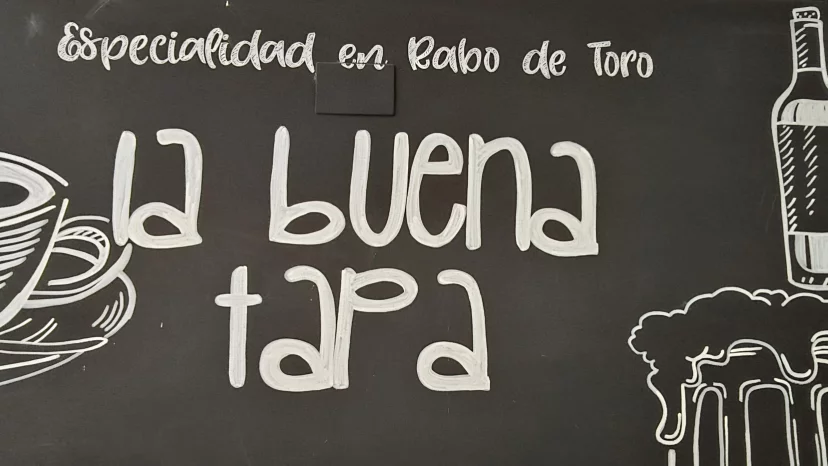 Especialidad en Rabo de Toro
la buena
tapa